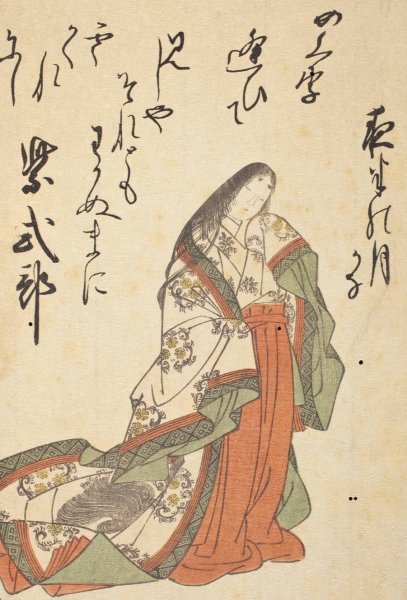 めくり
逢ひて
見しや
それとも
わかぬまに
雲
かくれ
にし
夜半の月
かな
紫式部